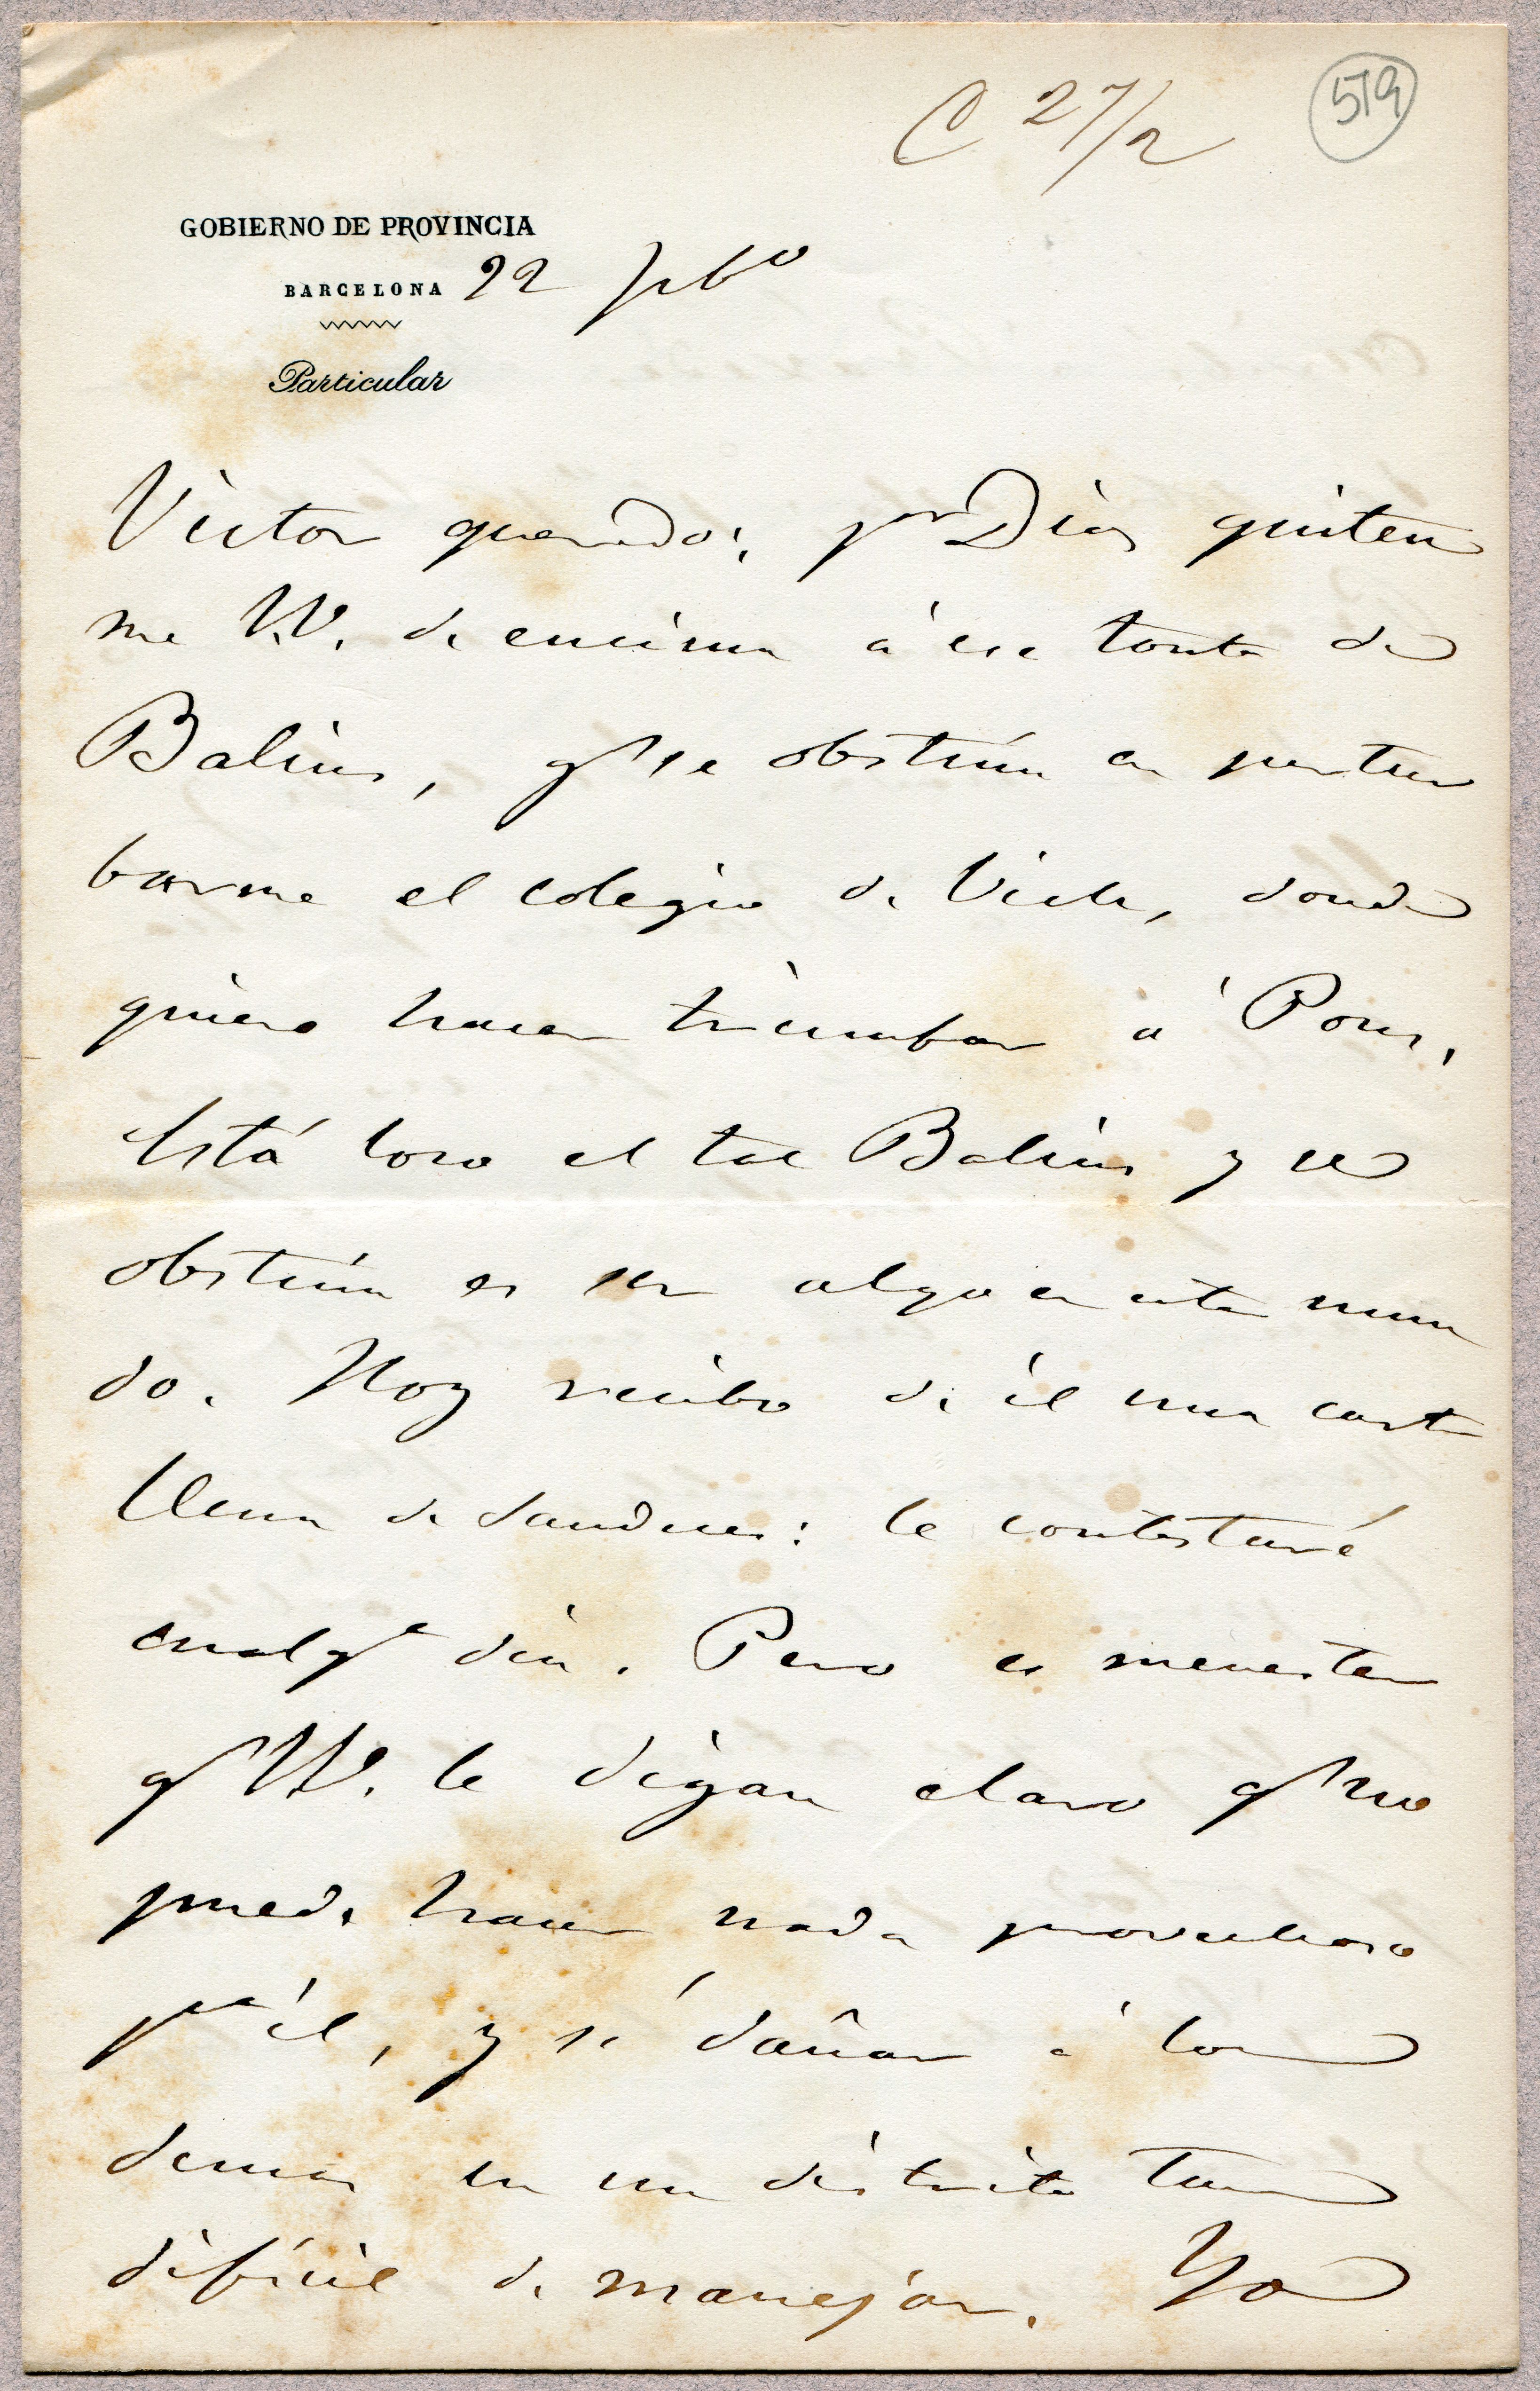 C 27/2
519
GOBIERNO DE PROVINCIA
BARCELONA 22 febº
Particular
Victor querido: pr Dios quiten
me VV. de encima á ese tonto de
Balius, qe se obstina en pertur
barme el colegio de Vich, donde
quiero hacer triunfar á Pons.
Está loco el tal Balius y se
obstina en ser algo en este mun
do. Hoy recibo de él una carta
llena de sandeces: le contestaré
cualqe dia. Pero es menester
qe VV. le digan claro qe no
puede hacer nada provechoso
pª él, y sí dañar á los
demas en un distrito tan
difícil de manejar. Yo